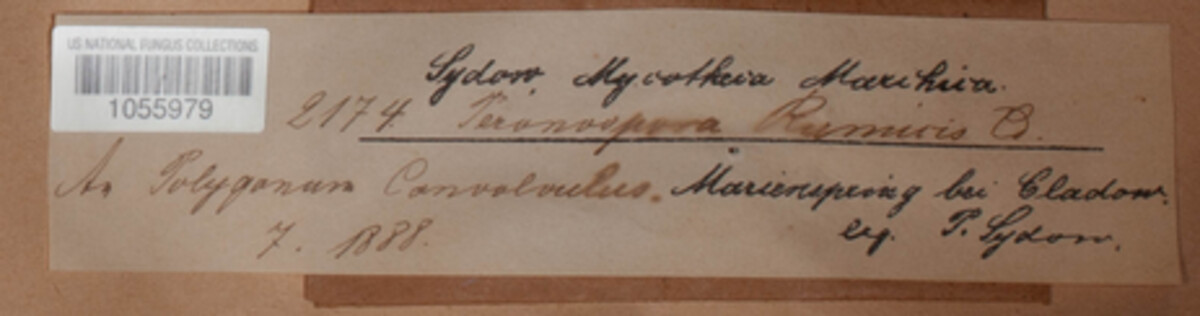 US NATIONAL FUNGUS COLLECTIONS
1055979
Sydow, Mycotheca Marchica.
2174. Peronospora Rumicis C.
An Polygonum Convolvulus. Marienspring bei Cladow.
7. 1888.
leg. P. Sydow.